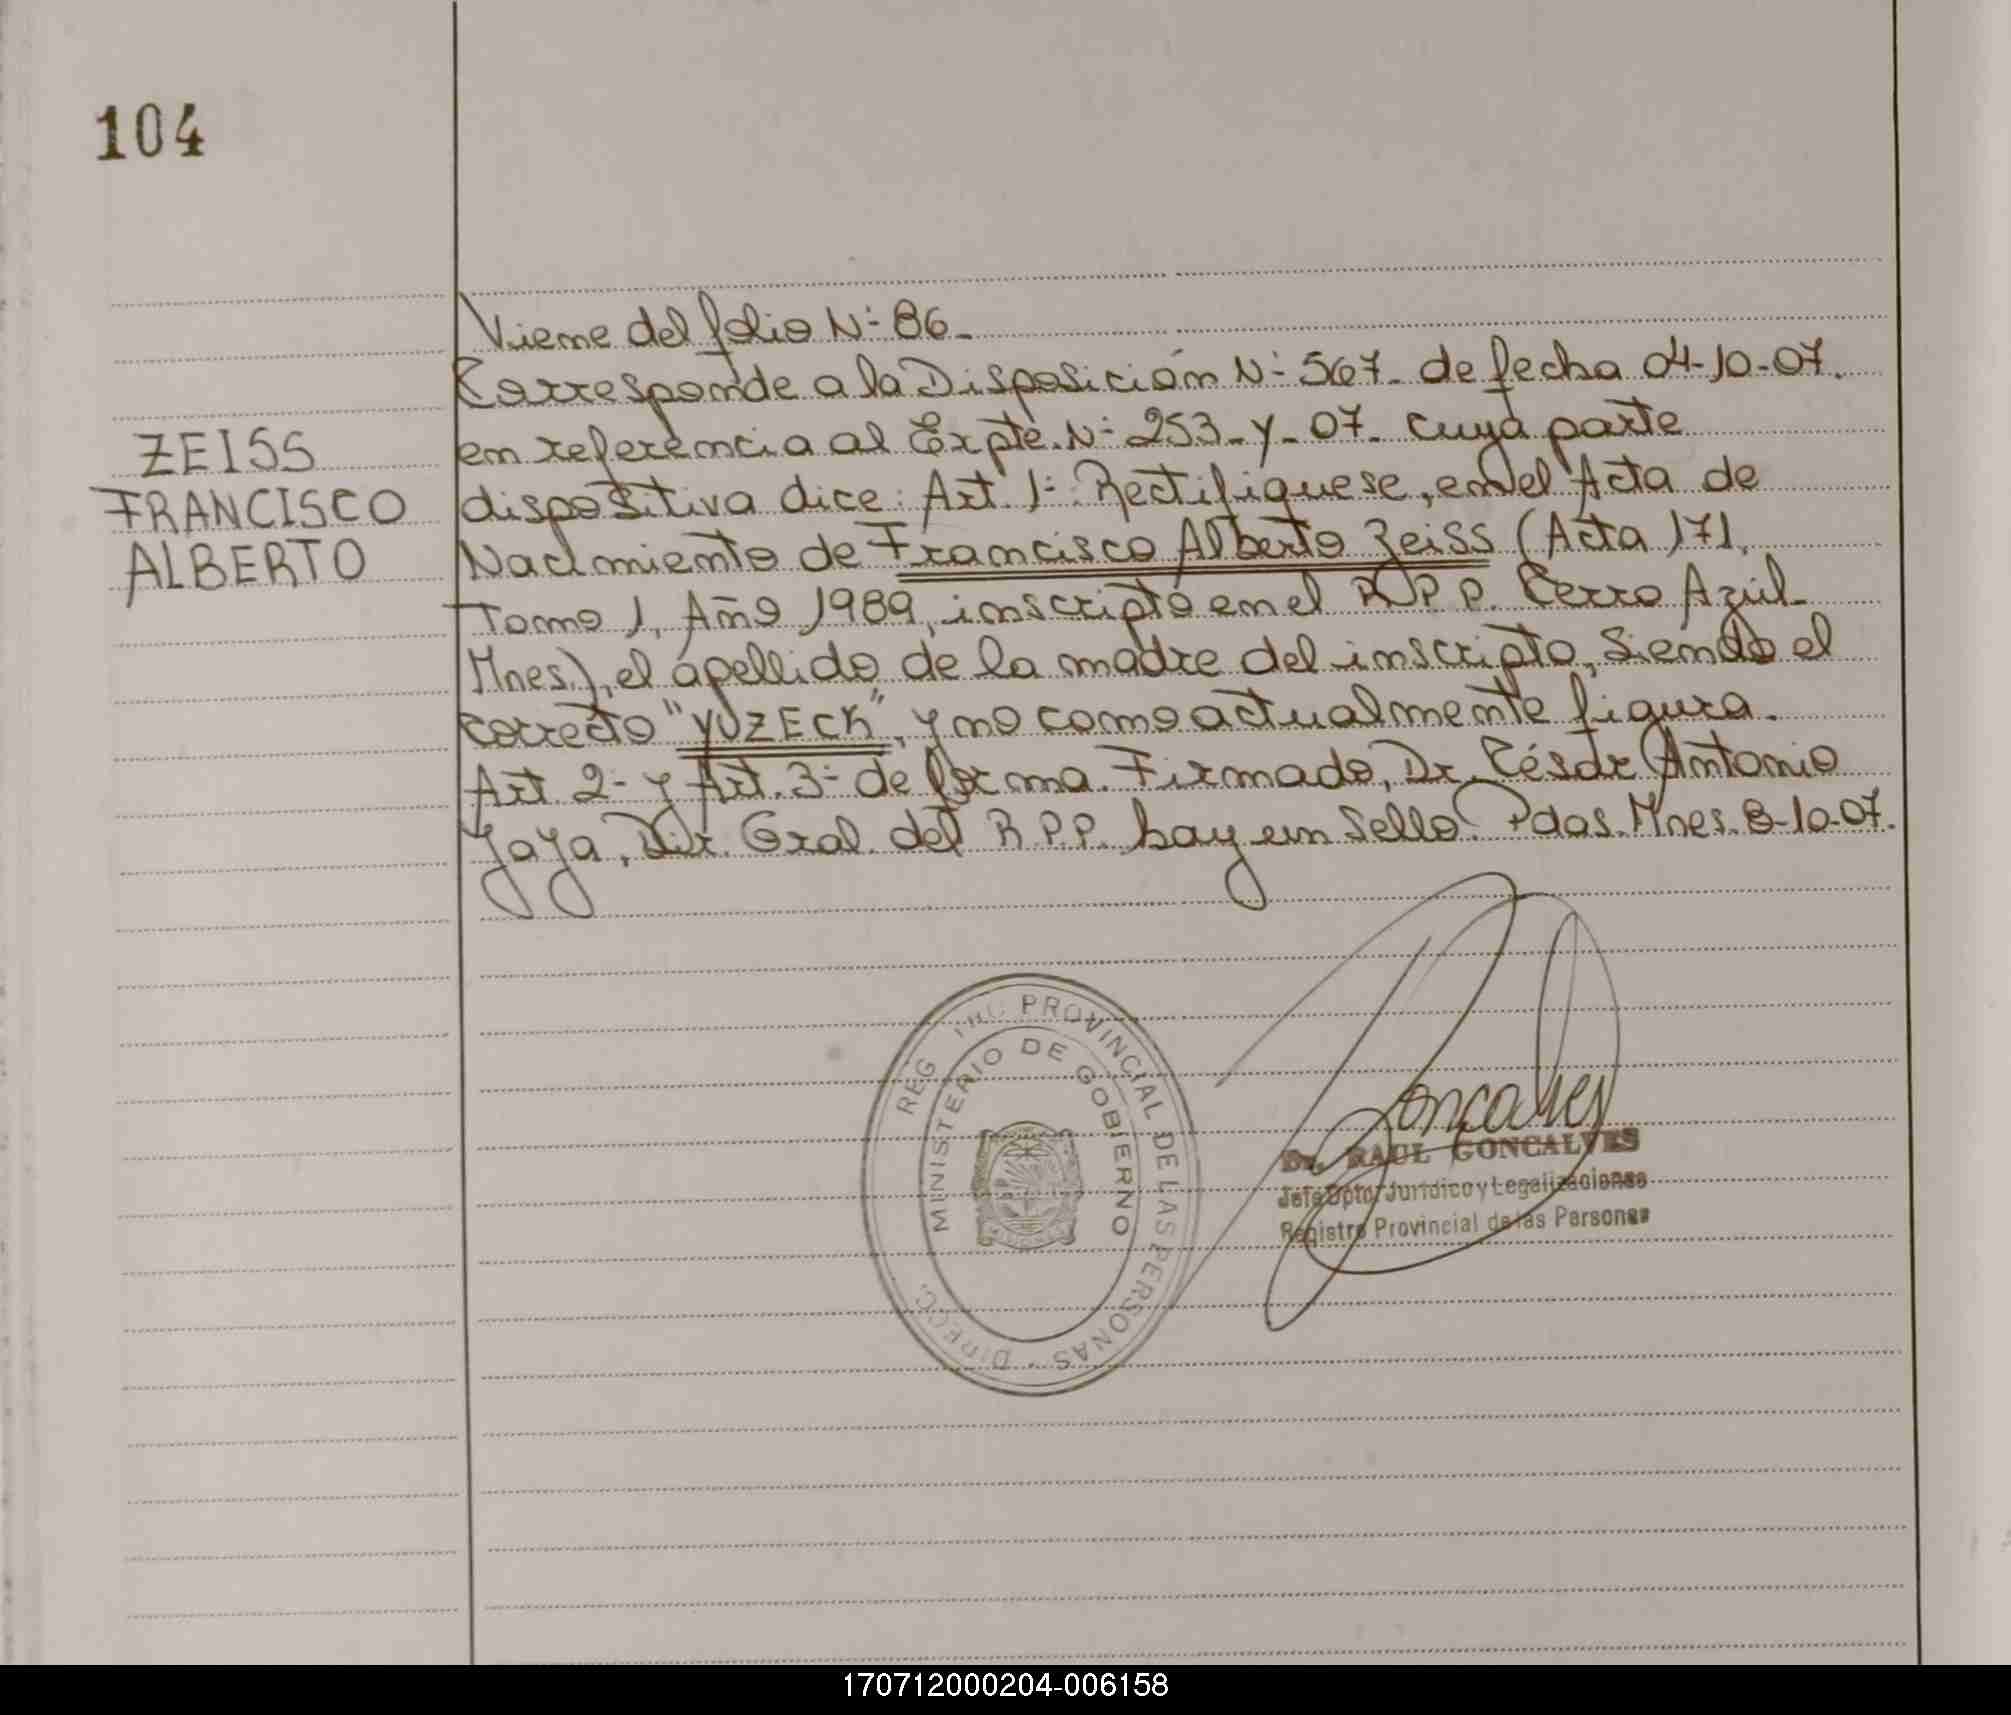 104
Viene del folio N- 86-
Corresponde a la Disposición N- 567- de fecha 04-10-07.
en referencia al Expte. N- 253-Y-07- cuya parte
ZEISS
FRANCISCO
ALBERTO
dispositiva dice: Art. 1- Rectifiquese, en el Acta de
Nacimiento de Francisco Alberto Zeiss (Acta 171,
Tomo 1, Año 1989, inscripto en el R.P.P. Cerro Azul-
Mnes.), el apellido de la madre del inscripto, siendo el
correcto "YUZECK", y no como actualmente figura.
Art. 2- y Art. 3- de forma. Firmado, Dr. César Antonio
Jaja, Dir. Gral. del R.P.P. hay un sello. Pdas. Mnes. 8-10-07.
DIRECC. REG PROVINCIAL DE LAS PERSONAS
MINISTERIO DE GOBIERNO
MISIONES
Goncalves
Dr. RAUL GONCALVES
Jefe Dpto. Jurídico y Legalizaciones
Registro Provincial de las Personas
170712000204-006158